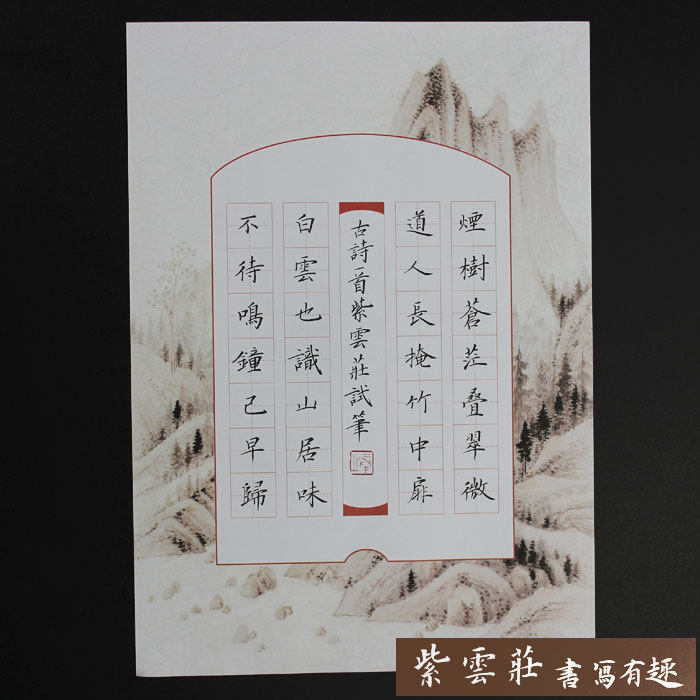 煙樹蒼茫叠翠微
道人長掩竹中扉
古詩一首紫雲莊試筆
白雲也識山居味
不待鳴鐘已早歸
紫雲莊 書寫有趣